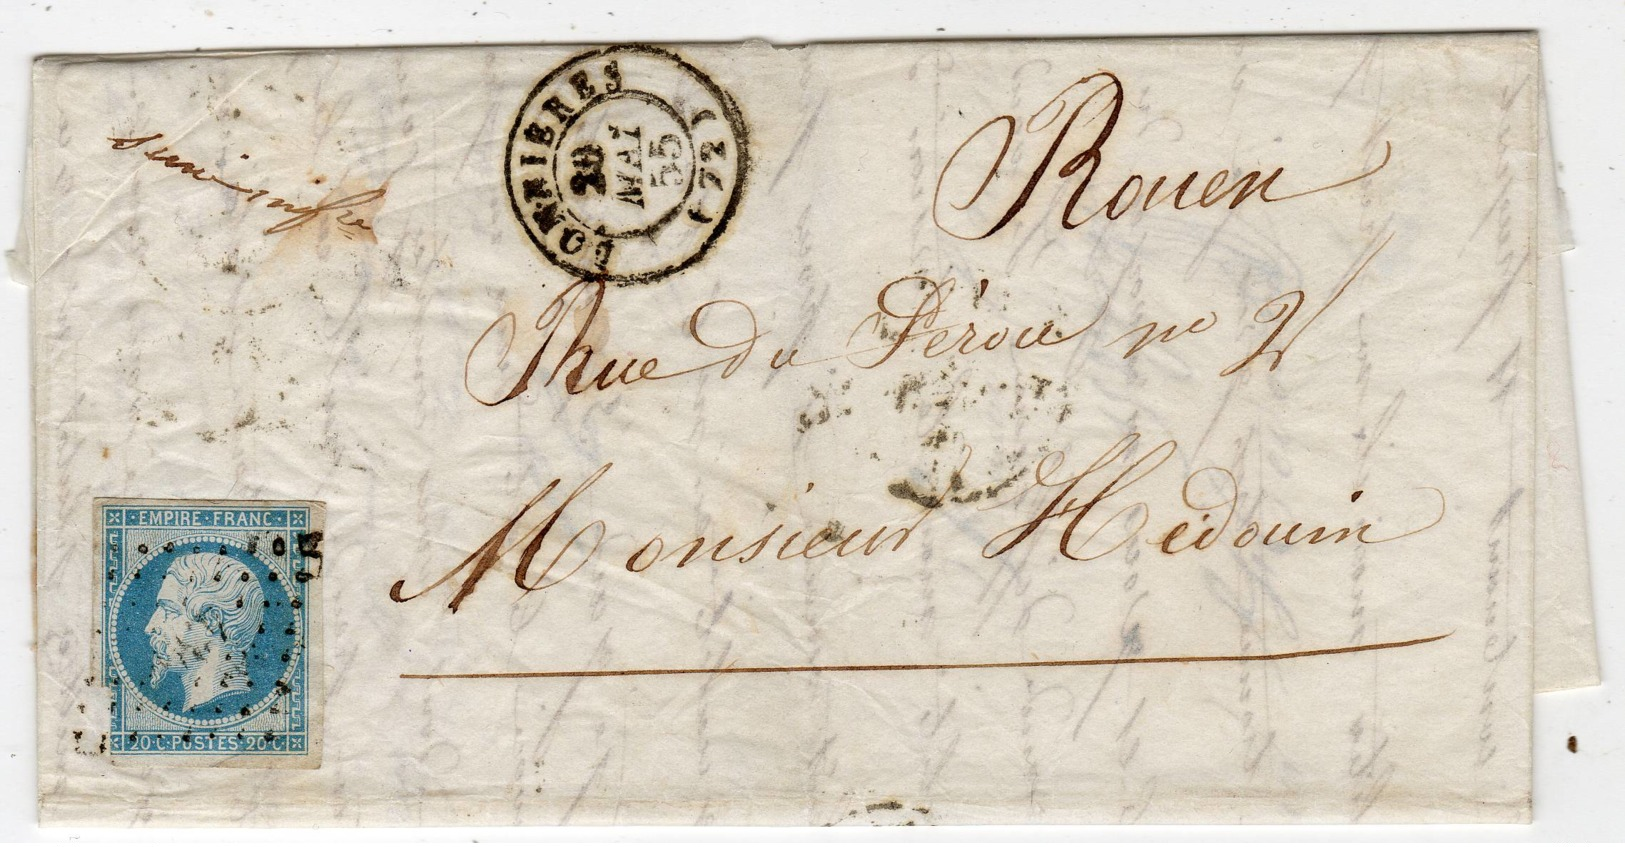 BONNIERES
20
MAI
55
(72)
Rouen
Rue du Pérou no 2
Monsieur Hedouin
EMPIRE·FRANC·
20·C·POSTES·20·C·